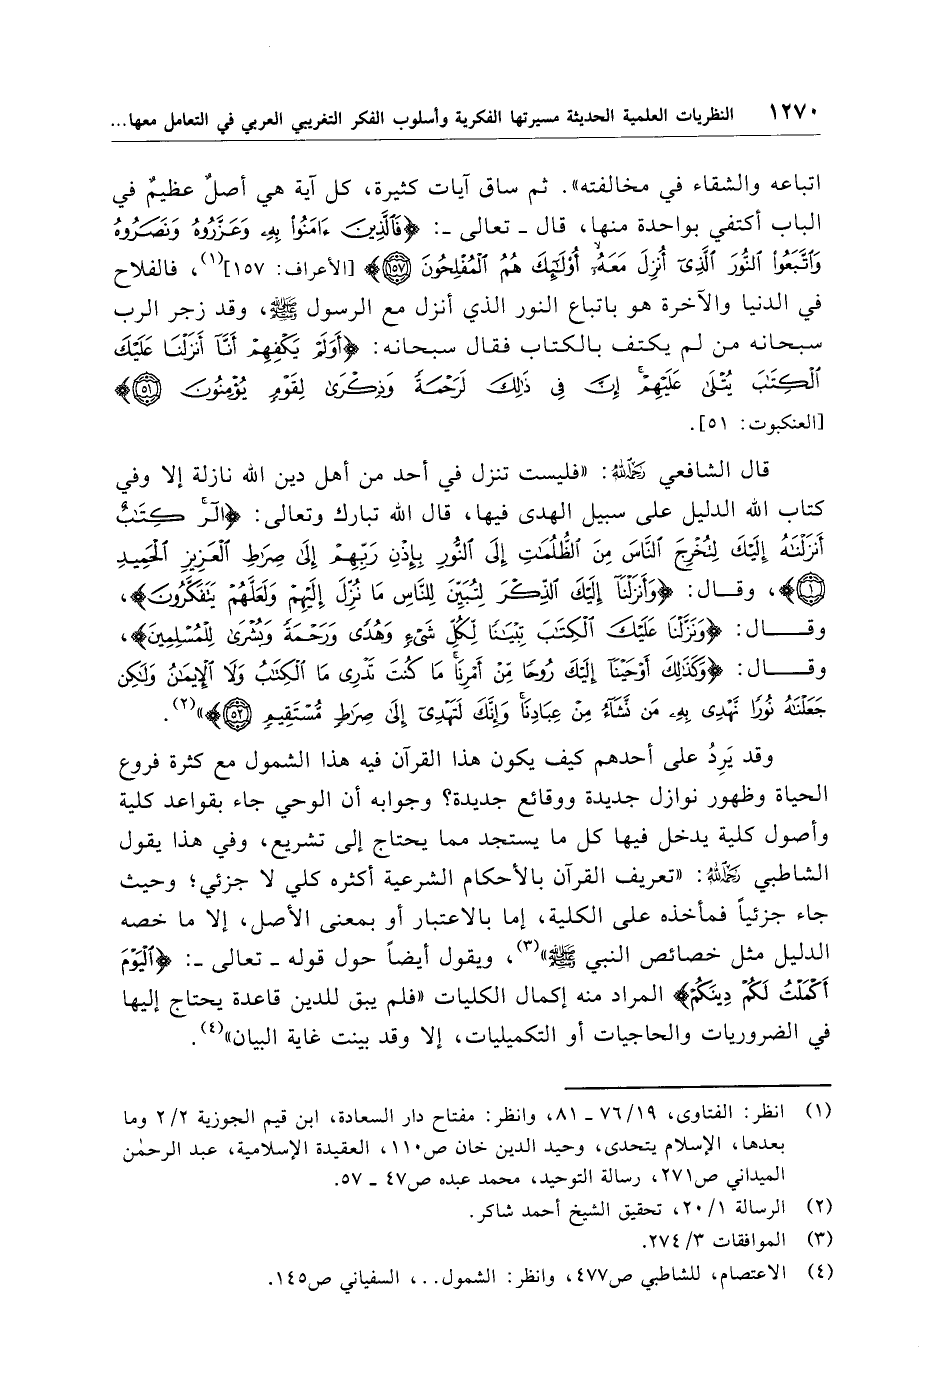 ١٢٧٠ النظريات العلمية الحديثة مسيرتها الفكرية وأسلوب الفكر التغريبي العربي في التعامل معها...
اتباعه والشقاء في مخالفته». ثم ساق آيات كثيرة، كل آية هي أصلٌ عظيمٌ في
الباب أكتفي بواحدة منها، قال ـ تعالى ـ: ﴿فَٱلَّذِينَ ءَامَنُوا۟ بِهِۦ وَعَزَّرُوهُ وَنَصَرُوهُ
وَٱتَّبَعُوا۟ ٱلنُّورَ ٱلَّذِىٓ أُنزِلَ مَعَهُۥٓ أُو۟لَٰٓئِكَ هُمُ ٱلْمُفْلِحُونَ ١٥٧﴾ [الأعراف: ١٥٧](١)، فالفلاح
في الدنيا والآخرة هو باتباع النور الذي أنزل مع الرسول ﷺ، وقد زجر الرب
سبحانه من لم يكتف بالكتاب فقال سبحانه: ﴿أَوَلَمْ يَكْفِهِمْ أَنَّآ أَنزَلْنَا عَلَيْكَ
ٱلْكِتَٰبَ يُتْلَىٰ عَلَيْهِمْ إِنَّ فِى ذَٰلِكَ لَرَحْمَةً وَذِكْرَىٰ لِقَوْمٍ يُؤْمِنُونَ ٥١﴾
[العنكبوت: ٥١].
قال الشافعي رحمه الله: «فليست تنزل في أحد من أهل دين الله نازلة إلا وفي
كتاب الله الدليل على سبيل الهدى فيها، قال الله تبارك وتعالى: ﴿الٓر كِتَٰبٌ
أَنزَلْنَٰهُ إِلَيْكَ لِتُخْرِجَ ٱلنَّاسَ مِنَ ٱلظُّلُمَٰتِ إِلَى ٱلنُّورِ بِإِذْنِ رَبِّهِمْ إِلَىٰ صِرَٰطِ ٱلْعَزِيزِ ٱلْحَمِيدِ
١﴾، وقــال: ﴿وَأَنزَلْنَآ إِلَيْكَ ٱلذِّكْرَ لِتُبَيِّنَ لِلنَّاسِ مَا نُزِّلَ إِلَيْهِمْ وَلَعَلَّهُمْ يَتَفَكَّرُونَ﴾،
وقــــال: ﴿وَنَزَّلْنَا عَلَيْكَ ٱلْكِتَٰبَ تِبْيَٰنًا لِّكُلِّ شَىْءٍ وَهُدًى وَرَحْمَةً وَبُشْرَىٰ لِلْمُسْلِمِينَ﴾،
وقــــال: ﴿وَكَذَٰلِكَ أَوْحَيْنَآ إِلَيْكَ رُوحًا مِّنْ أَمْرِنَا مَا كُنتَ تَدْرِى مَا ٱلْكِتَٰبُ وَلَا ٱلْإِيمَٰنُ وَلَٰكِن
جَعَلْنَٰهُ نُورًا نَّهْدِى بِهِۦ مَن نَّشَآءُ مِنْ عِبَادِنَا وَإِنَّكَ لَتَهْدِىٓ إِلَىٰ صِرَٰطٍ مُّسْتَقِيمٍ ٥٢﴾»(٢).
وقد يَرِدُ على أحدهم كيف يكون هذا القرآن فيه هذا الشمول مع كثرة فروع
الحياة وظهور نوازل جديدة ووقائع جديدة؟ وجوابه أن الوحي جاء بقواعد كلية
وأصول كلية يدخل فيها كل ما يستجد مما يحتاج إلى تشريع، وفي هذا يقول
الشاطبي رحمه الله: «تعريف القرآن بالأحكام الشرعية أكثره كلي لا جزئي؛ وحيث
جاء جزئياً فمأخذه على الكلية، إما بالاعتبار أو بمعنى الأصل، إلا ما خصه
الدليل مثل خصائص النبي ﷺ»(٣)، ويقول أيضاً حول قوله ـ تعالى ـ: ﴿ٱلْيَوْمَ
أَكْمَلْتُ لَكُمْ دِينَكُمْ﴾ المراد منه إكمال الكليات «فلم يبق للدين قاعدة يحتاج إليها
في الضروريات والحاجيات أو التكميليات، إلا وقد بينت غاية البيان»(٤).
(١) انظر: الفتاوى، ١٩/ ٧٦ ـ ٨١، وانظر: مفتاح دار السعادة، ابن قيم الجوزية ٢/ ٢ وما
بعدها، الإسلام يتحدى، وحيد الدين خان ص١١٠، العقيدة الإسلامية، عبد الرحمٰن
الميداني ص٢٧١، رسالة التوحيد، محمد عبده ص٤٧ ـ ٥٧.
(٢) الرسالة ١/ ٢٠، تحقيق الشيخ أحمد شاكر.
(٣) الموافقات ٣/ ٢٧٤.
(٤) الاعتصام، للشاطبي ص٤٧٧، وانظر: الشمول..، السفياني ص١٤٥.